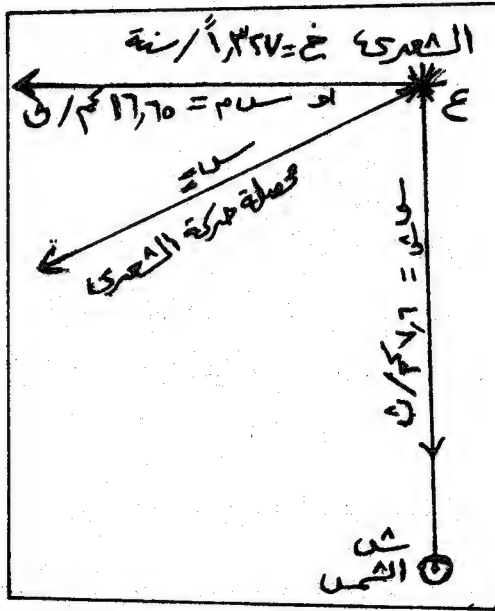 الشعرى خ = ١,٣٢٧ً/سنة
ع
او سم = ١٦,٦٥ كم/ث
محصلة حركة الشعرى
سش = ٧,٦ كم/ث
ش
الشمس